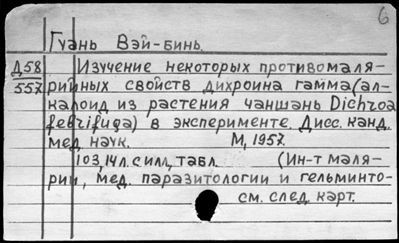 6
Гуань Вэй-бинь.
Д58 Изучение некоторых противомаля-
557 рийных свойств дихроина гамма (ал-
калоид из растения чаншань Dichroa
febrifuga) в эксперименте. Дисс. канд.
мед. наук. М, 1957.
103,14 л. с илл., табл. (Ин-т маля-
рии, мед. паразитологии и гельминто-
см. след. карт.